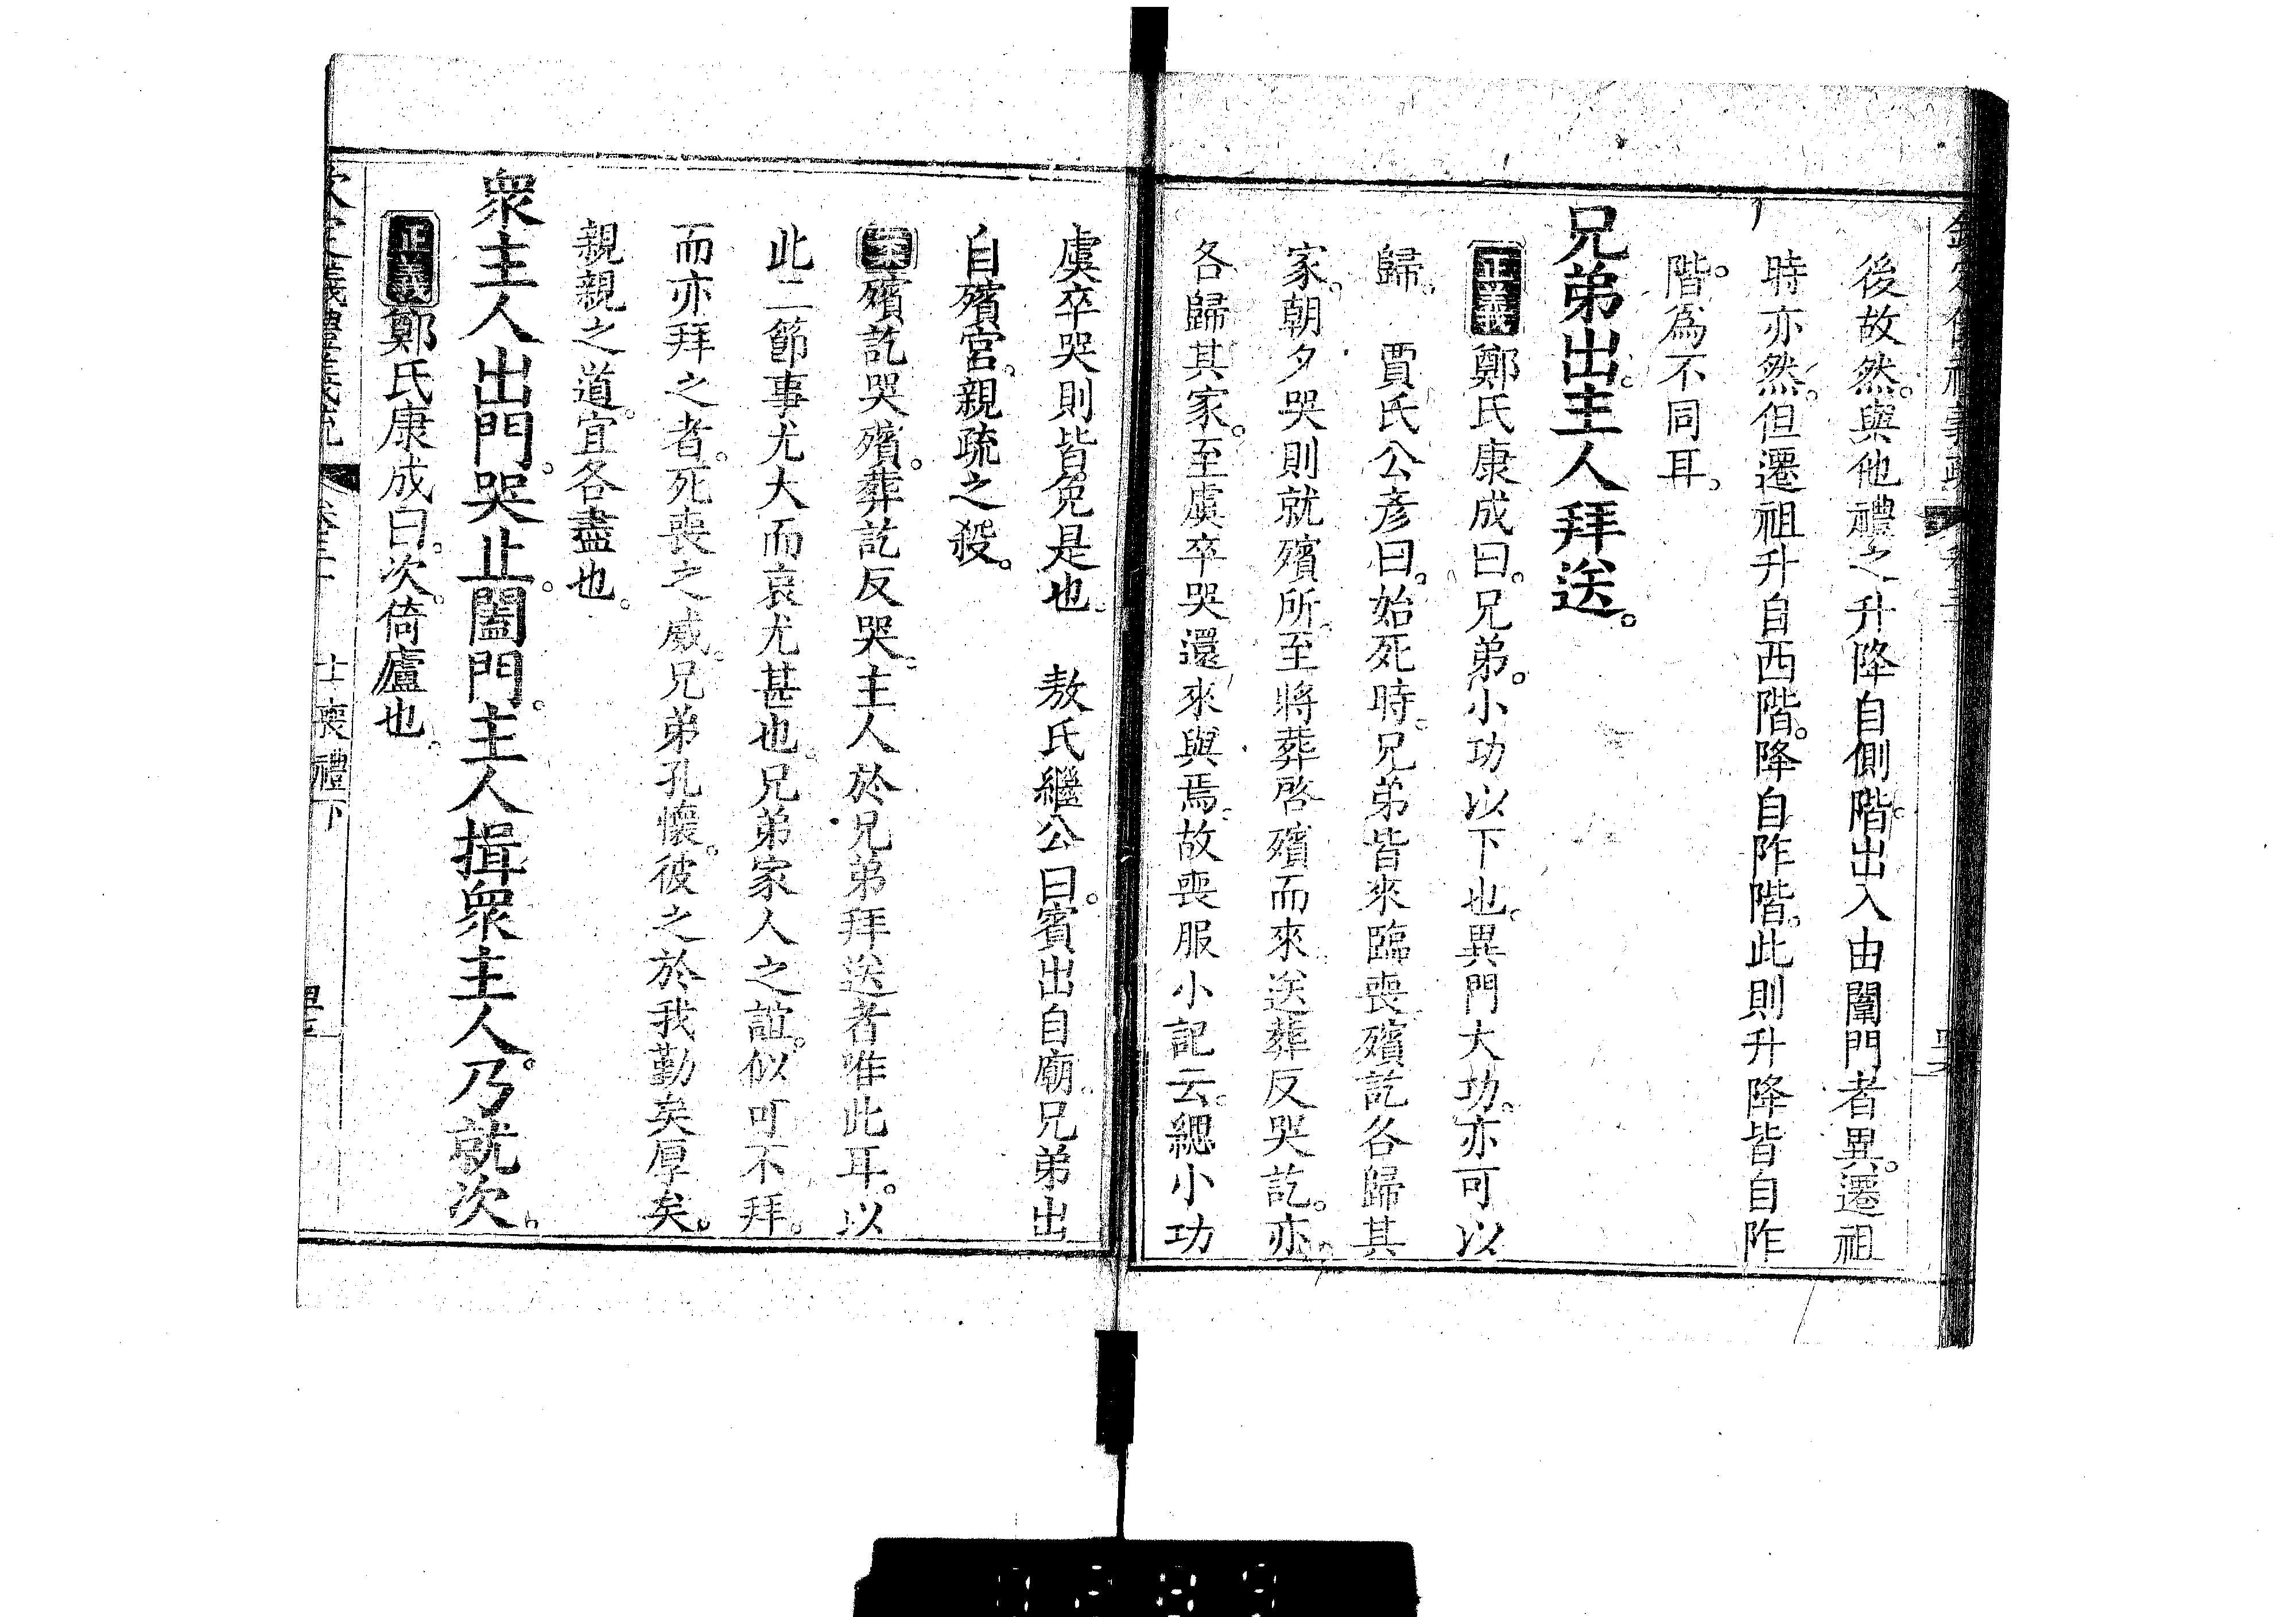 後故然。與他禮之升降自側階。出入由闈門者異。遷祖
時亦然。但遷祖升自西階。降自阼階。此則升降皆自阼
階。爲不同耳。
兄弟出。主人拜送。
正義鄭氏康成曰。兄弟。小功以下也。異門大功。亦可以
歸。 賈氏公彥曰。始死時。兄弟皆來臨喪。殯訖各歸其
家。朝夕哭則就殯所。至將葬啓殯而來。送葬反哭訖。亦
各歸其家。至虞卒哭還來與焉。故喪服小記云。緦小功
虞卒哭則皆免是也。 敖氏繼公曰。賓出自廟。兄弟出
自殯宮。親疏之殺。
案殯訖哭殯。葬訖反哭。主人於兄弟拜送者唯此耳。以
此二節事尤大而哀尤甚也。兄弟家人之誼。似可不拜。
而亦拜之者。死喪之威。兄弟孔懷。彼之於我勤矣厚矣。
親親之道。宜各盡也。
衆主人出門。哭止。闔門。主人揖衆主人。乃就次。
正義鄭氏康成曰。次。倚廬也。
士喪禮下